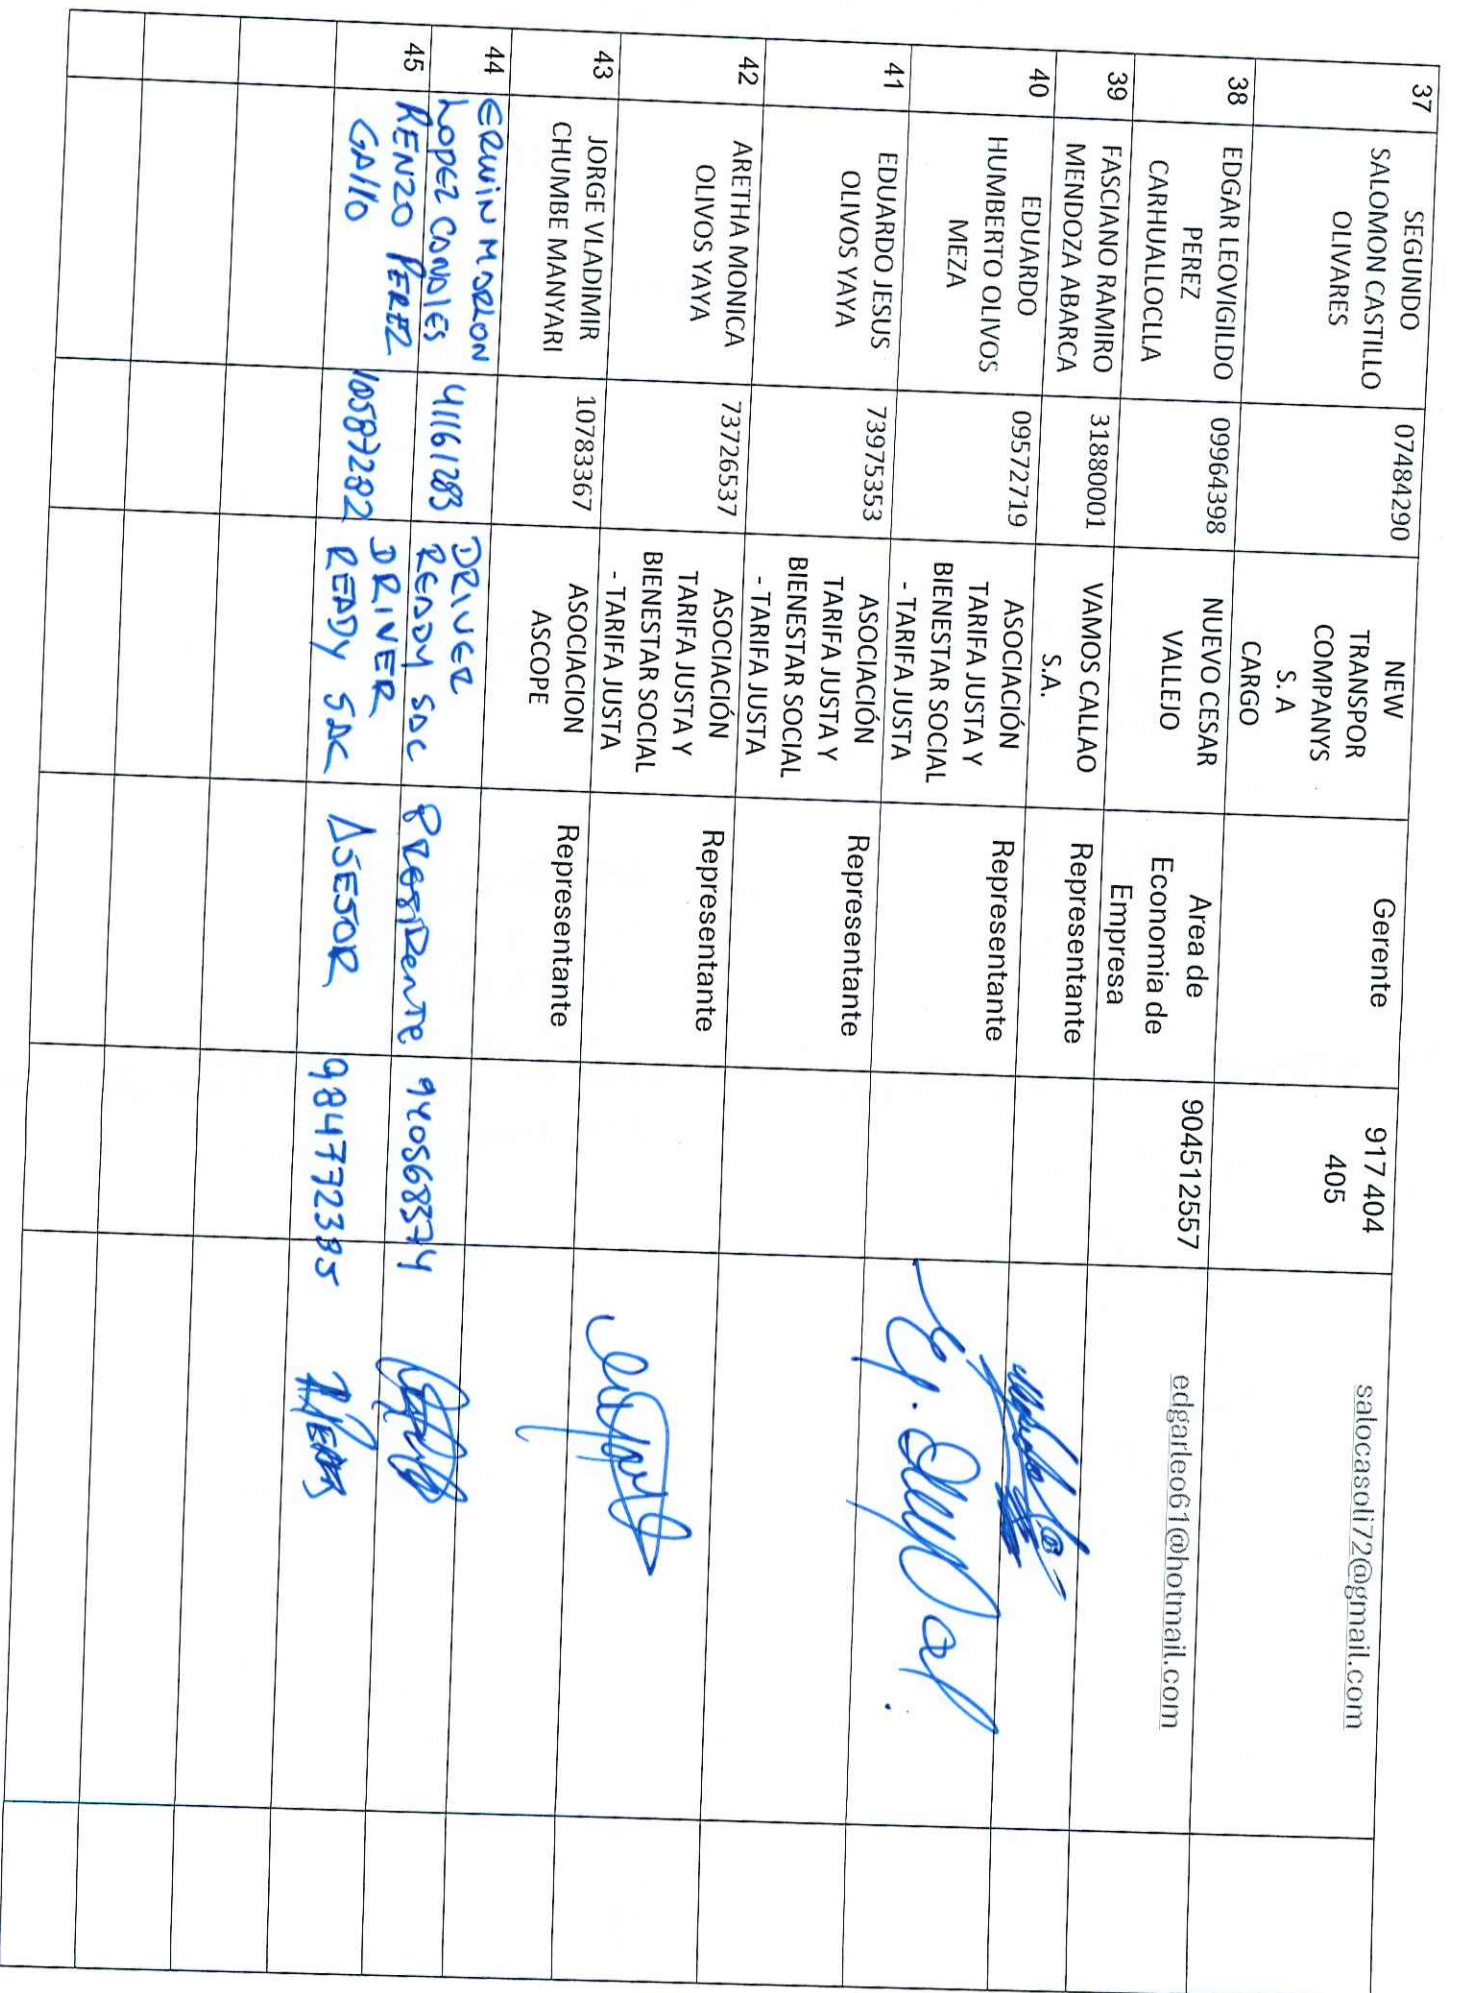 37
SEGUNDO
SALOMON CASTILLO
OLIVARES
07484290
NEW
TRANSPOR
COMPANYS
S. A
CARGO
Gerente
917 404
405
salocasoli72@gmail.com
38
EDGAR LEOVIGILDO
PEREZ
CARHUALLOCLLA
09964398
NUEVO CESAR
VALLEJO
Area de
Economia de
Empresa
904512557
edgarleo61@hotmail.com
39
FASCIANO RAMIRO
MENDOZA ABARCA
31880001
VAMOS CALLAO
S.A.
Representante
40
EDUARDO
HUMBERTO OLIVOS
MEZA
09572719
ASOCIACIÓN
TARIFA JUSTA Y
BIENESTAR SOCIAL
- TARIFA JUSTA
Representante
41
EDUARDO JESUS
OLIVOS YAYA
73975353
ASOCIACIÓN
TARIFA JUSTA Y
BIENESTAR SOCIAL
- TARIFA JUSTA
Representante
42
ARETHA MONICA
OLIVOS YAYA
73726537
ASOCIACIÓN
TARIFA JUSTA Y
BIENESTAR SOCIAL
- TARIFA JUSTA
Representante
43
JORGE VLADIMIR
CHUMBE MANYARI
10783367
ASOCIACION
ASCOPE
Representante
44
ERWIN MORLON
LOPEZ CANALES
41161283
DRIVER
READY SAC
PRESIDENTE
940568374
45
RENZO PEREZ
GAllO
10587282
DRIVER
READY SAC
ASESOR
984772385